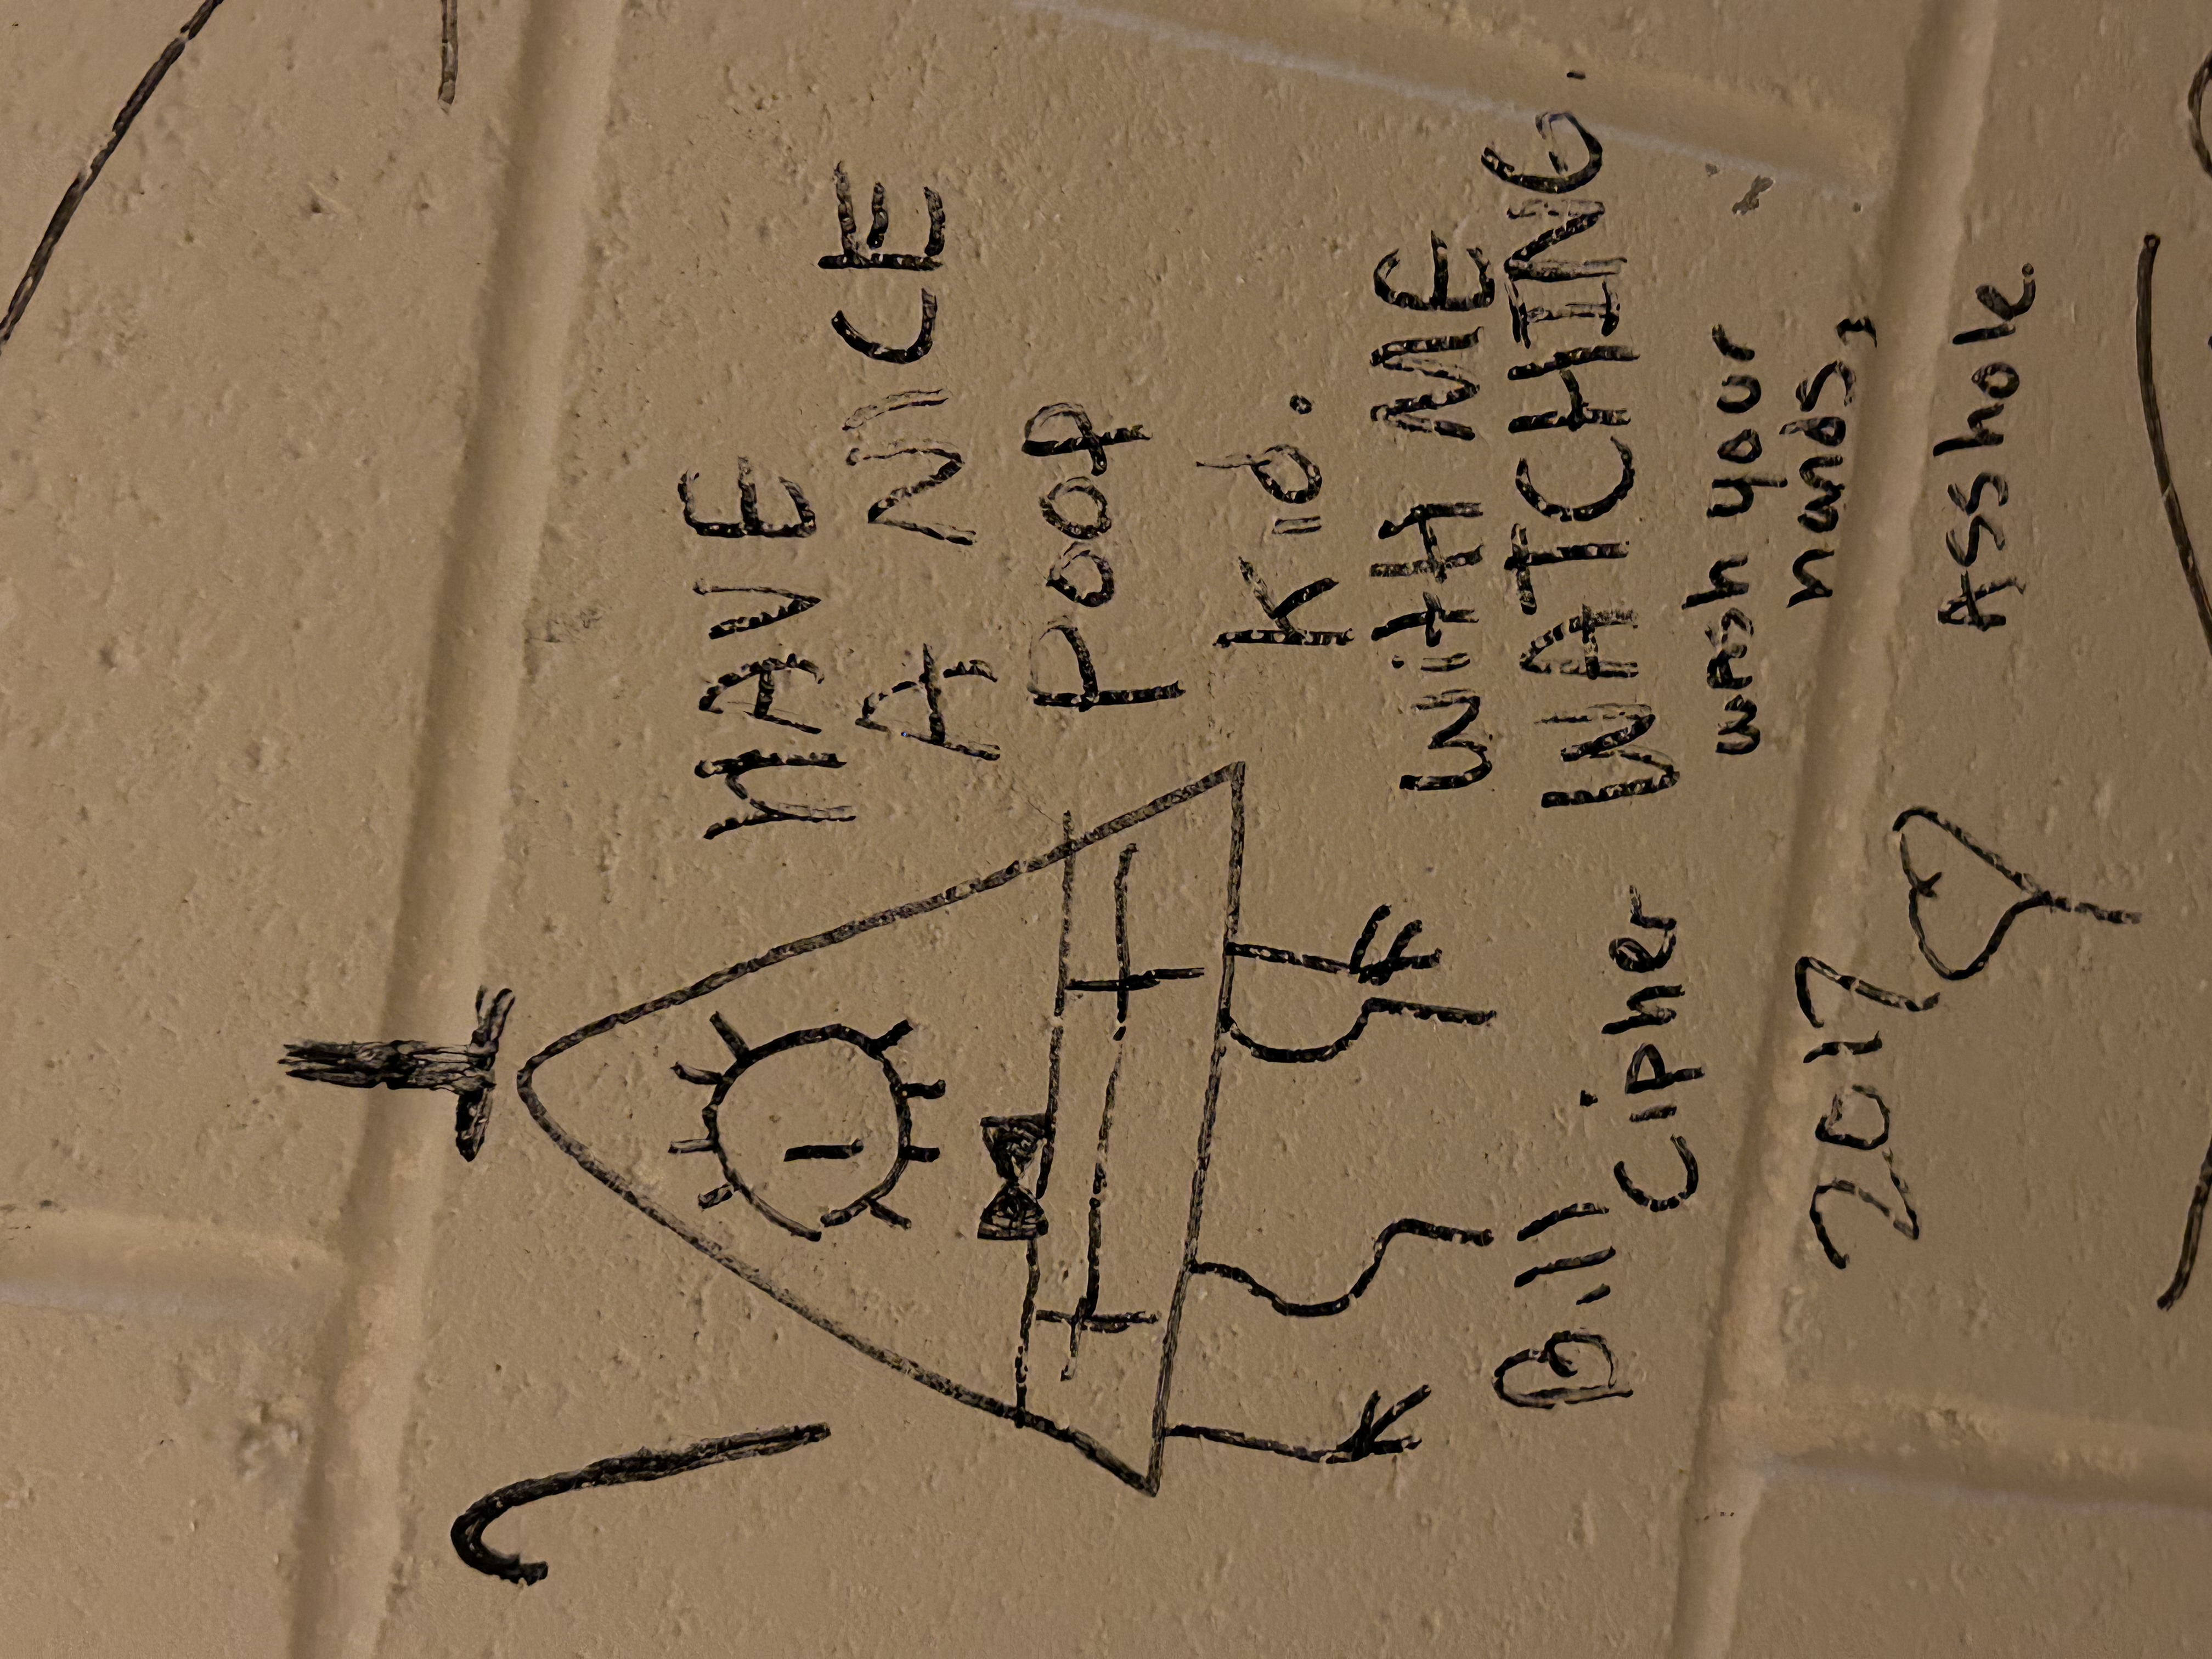 HAVE
A NICE
POOP
Kid.
WitH ME
WATCHING.
wash your
hands,
Asshole.
Bill
cipher
2017